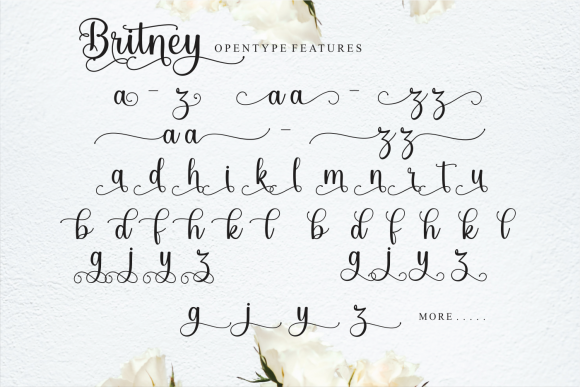 Britney OPENTYPE FEATURES
a - z aa - zz
aa - zz
a d h i k l m n r t u
b d f h k l b d f h k l
g j y z g j y z
g j y z MORE . . . . .